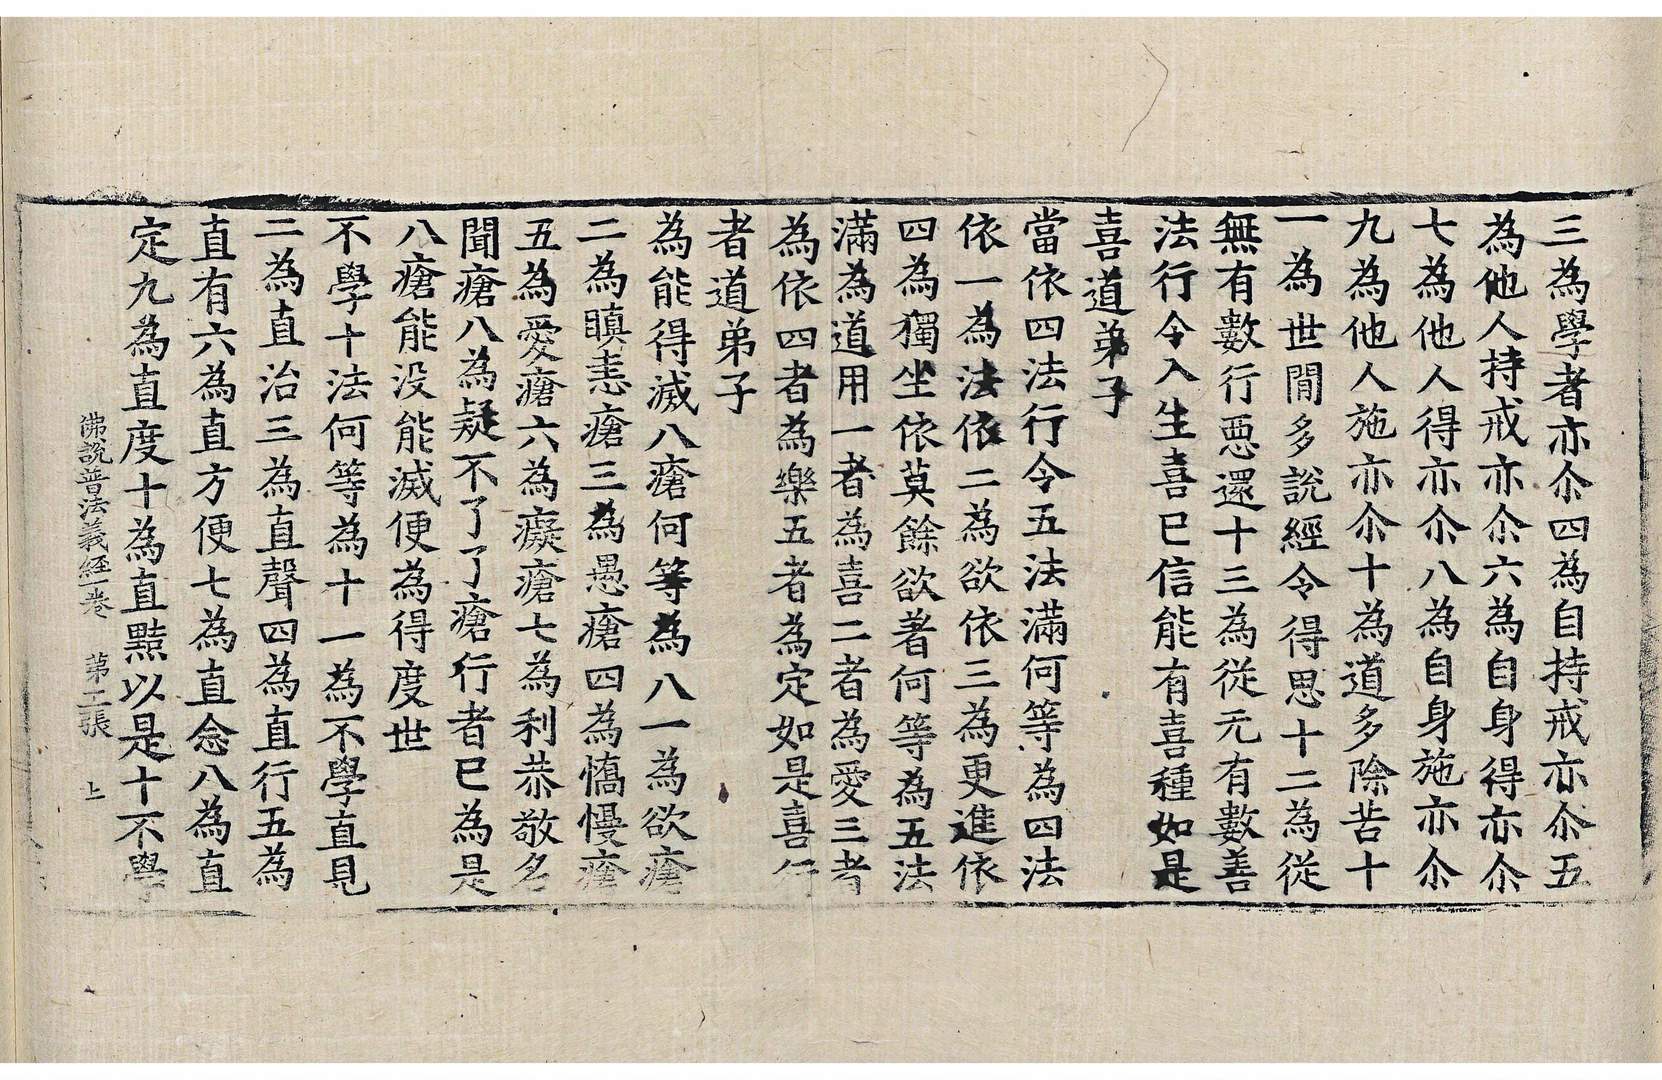 三為學者亦尒四為自持戒亦尒五
為他人持戒亦尒六為自身得亦尒
七為他人得亦尒八為自身施亦尒
九為他人施亦尒十為道多除苦十
一為世間多說經令得思十二為從
無有數行惡還十三為從无有數善
法行令入生喜已信能有喜種如是
喜道弟子
當依四法行令五法滿何等為四法
依一為法依二為欲依三為更進依
四為獨坐依莫餘欲著何等為五法
滿為道用一者為喜二者為愛三者
為依四者為樂五者為定如是喜行
者道弟子
為能得滅八瘡何等為八一為欲瘡
二為瞋恚瘡三為愚瘡四為憍慢瘡
五為愛瘡六為癡瘡七為利恭敬名
聞瘡八為疑不了了瘡行者已為是
八瘡能没能滅便為得度世
不學十法何等為十一為不學直見
二為直治三為直聲四為直行五為
直有六為直方便七為直念八為直
定九為直度十為直黠以是十不學
佛說普法義經一卷 第二張 上